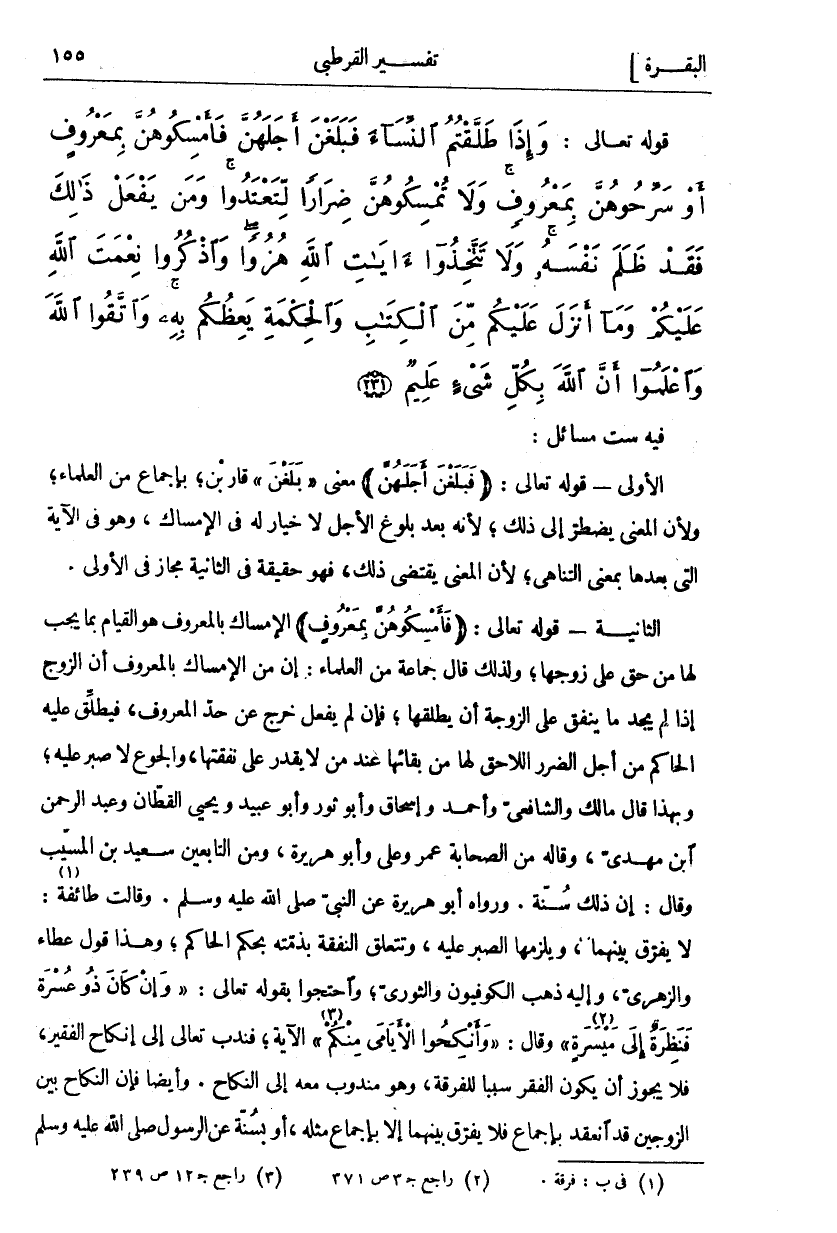 البقرة] تفسير القرطبي ١٥٥
قوله تعالى : وَإِذَا طَلَّقْتُمُ ٱلنِّسَآءَ فَبَلَغْنَ أَجَلَهُنَّ فَأَمْسِكُوهُنَّ بِمَعْرُوفٍ
أَوْ سَرِّحُوهُنَّ بِمَعْرُوفٍ ۚ وَلَا تُمْسِكُوهُنَّ ضِرَارًا لِّتَعْتَدُوا ۚ وَمَن يَفْعَلْ ذَٰلِكَ
فَقَدْ ظَلَمَ نَفْسَهُۥ ۚ وَلَا تَتَّخِذُوٓا ءَايَـٰتِ ٱللَّهِ هُزُوًا ۖ وَٱذْكُرُوا نِعْمَتَ ٱللَّهِ
عَلَيْكُمْ وَمَآ أَنزَلَ عَلَيْكُم مِّنَ ٱلْكِتَـٰبِ وَٱلْحِكْمَةِ يَعِظُكُم بِهِۦ ۚ وَٱتَّقُوا ٱللَّهَ
وَٱعْلَمُوٓا أَنَّ ٱللَّهَ بِكُلِّ شَىْءٍ عَلِيمٌ ﴿٢٣١﴾
فيه ست مسائل :
الأولى — قوله تعالى : ﴿فَبَلَغْنَ أَجَلَهُنَّ﴾ معنى «بَلَغْنَ» قاربن؛ بإجماع من العلماء؛
ولأن المعنى يضطرّ إلى ذلك ؛ لأنه بعد بلوغ الأجل لا خيار له فى الإمساك ، وهو فى الآية
التى بعدها بمعنى التناهى؛ لأن المعنى يقتضى ذلك، فهو حقيقة فى الثانية مجاز فى الأولى .
الثانيـــة — قوله تعالى : ﴿فَأَمْسِكُوهُنَّ بِمَعْرُوفٍ﴾ الإمساك بالمعروف هو القيام بما يجب
لها من حق على زوجها؛ ولذلك قال جماعة من العلماء : إن من الإمساك بالمعروف أن الزوج
إذا لم يجد ما ينفق على الزوجة أن يطلقها ؛ فإن لم يفعل خرج عن حدّ المعروف، فيطلِّق عليه
الحاكم من أجل الضرر اللاحق لها من بقائها عند من لا يقدر على نفقتها، والجوع لا صبر عليه؛
وبهذا قال مالك والشافعىّ وأحمد وإسحاق وأبو ثور وأبو عبيد ويحيى القطّان وعبد الرحمن
ٱبن مهدىّ ، وقاله من الصحابة عمر وعلى وأبو هريرة ، ومن التابعين سعيد بن المسيّب
وقال : إن ذلك سُنّة . ورواه أبو هريرة عن النبىّ صلى الله عليه وسلم . وقالت طائفة (١) :
لا يفرّق بينهما ، ويلزمها الصبر عليه ، وتتعلق النفقة بذمّته بحكم الحاكم ؛ وهذا قول عطاء
والزهرىّ، وإليه ذهب الكوفيون والثورىّ؛ وٱحتجوا بقوله تعالى : « وَإِنْ كَانَ ذُو عُسْرَةٍ
فَنَظِرَةٌ إِلَى مَيْسَرَةٍ» (٢) وقال : «وَأَنْكِحُوا الْأَيَامَى مِنْكُمْ» (٣) الآية؛ فندب تعالى إلى إنكاح الفقير،
فلا يجوز أن يكون الفقر سببا للفرقة، وهو مندوب معه إلى النكاح . وأيضا فإن النكاح بين
الزوجين قد ٱنعقد بإجماع فلا يفرّق بينهما إلا بإجماع مثله ،أو بسُنّة عن الرسول صلى الله عليه وسلم
(١) فى ب : فرقة . (٢) راجع جـ٣ص ٣٧١ (٣) راجع جـ١٢ ص ٢٣٩